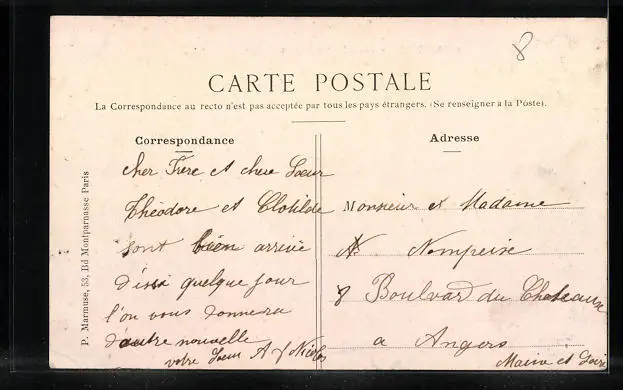 8
CARTE POSTALE
La Correspondance au recto n'est pas acceptée par tous les pays étrangers. (Se renseigner à la Poste).
Correspondance
cher Frère et chere Soeur
Théodore et Clotilde
sont bien arrivée
d'issi quelque jour
l'on vous donnera
d'autre nouvelle
votre Soeur A
Adresse
Monsieur et Madame
8 Boulvard du Chateaux
a Angers
Maine et Loire
P. Marmuse, 53, Bd Montparnasse Paris